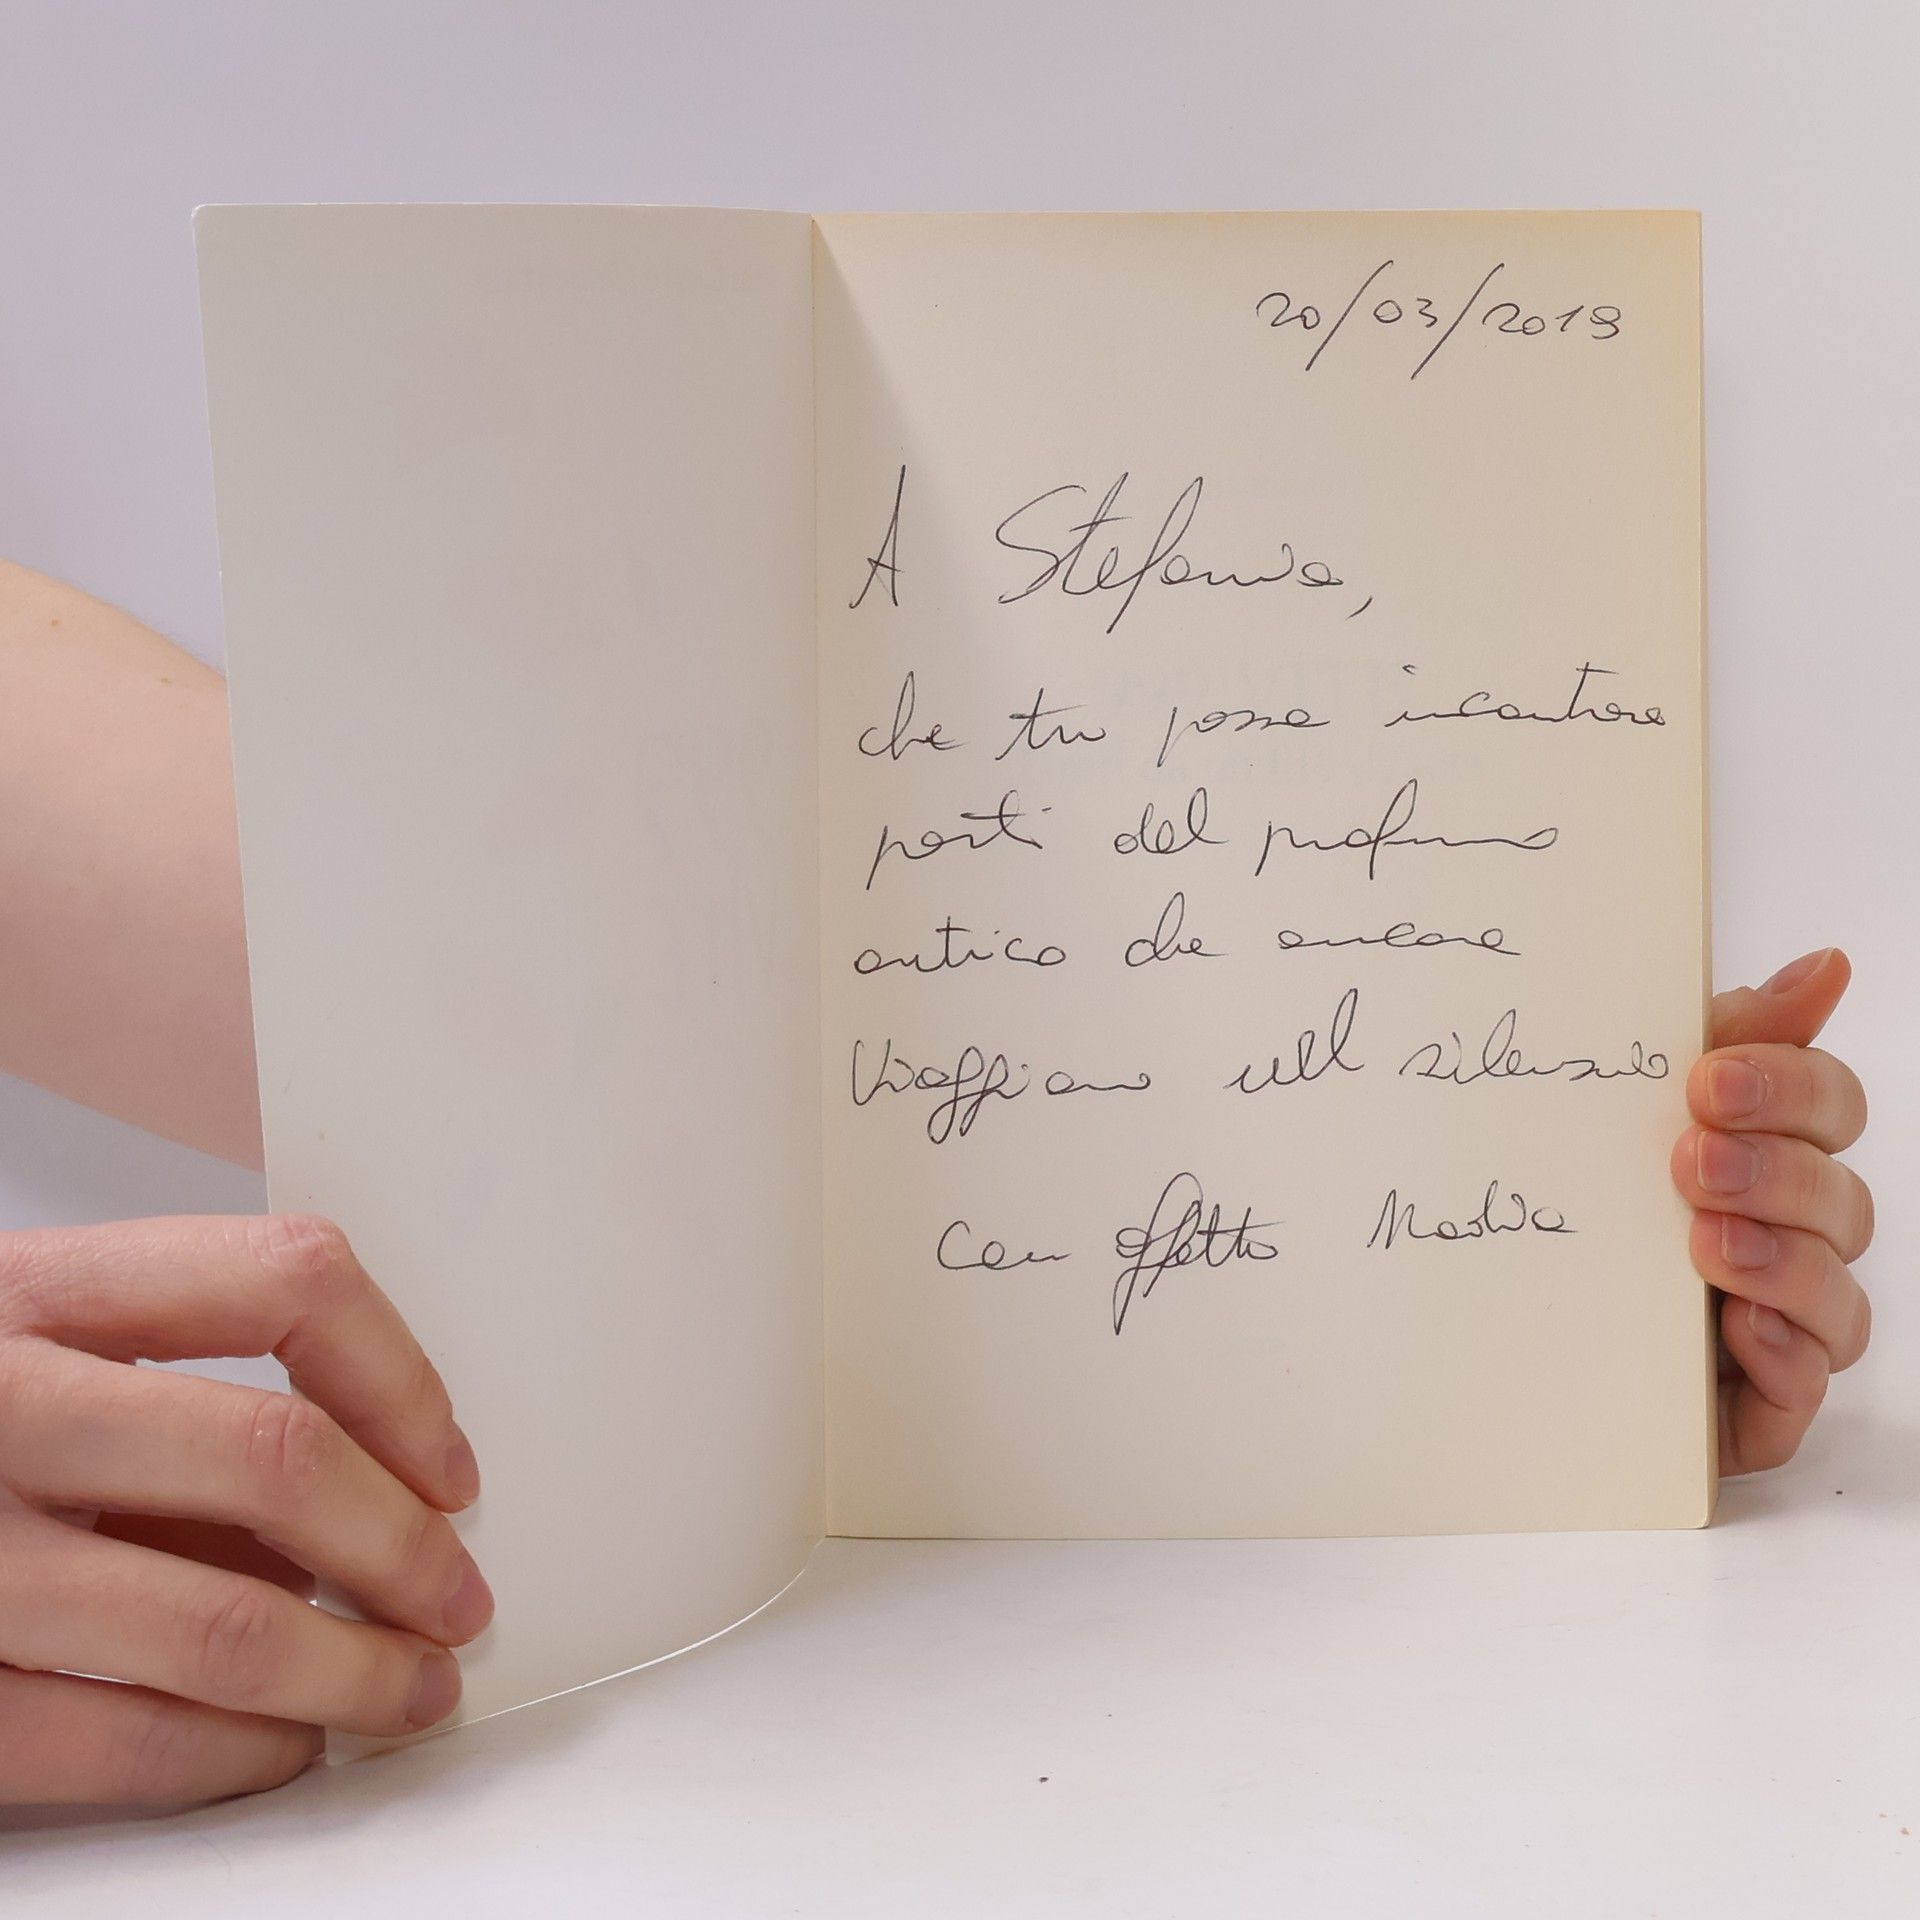 20/03/2019
A Stefania,
che tu possa incontrare
posti del profumo
antico che ancora
viaggiano nel silenzio
Con affetto